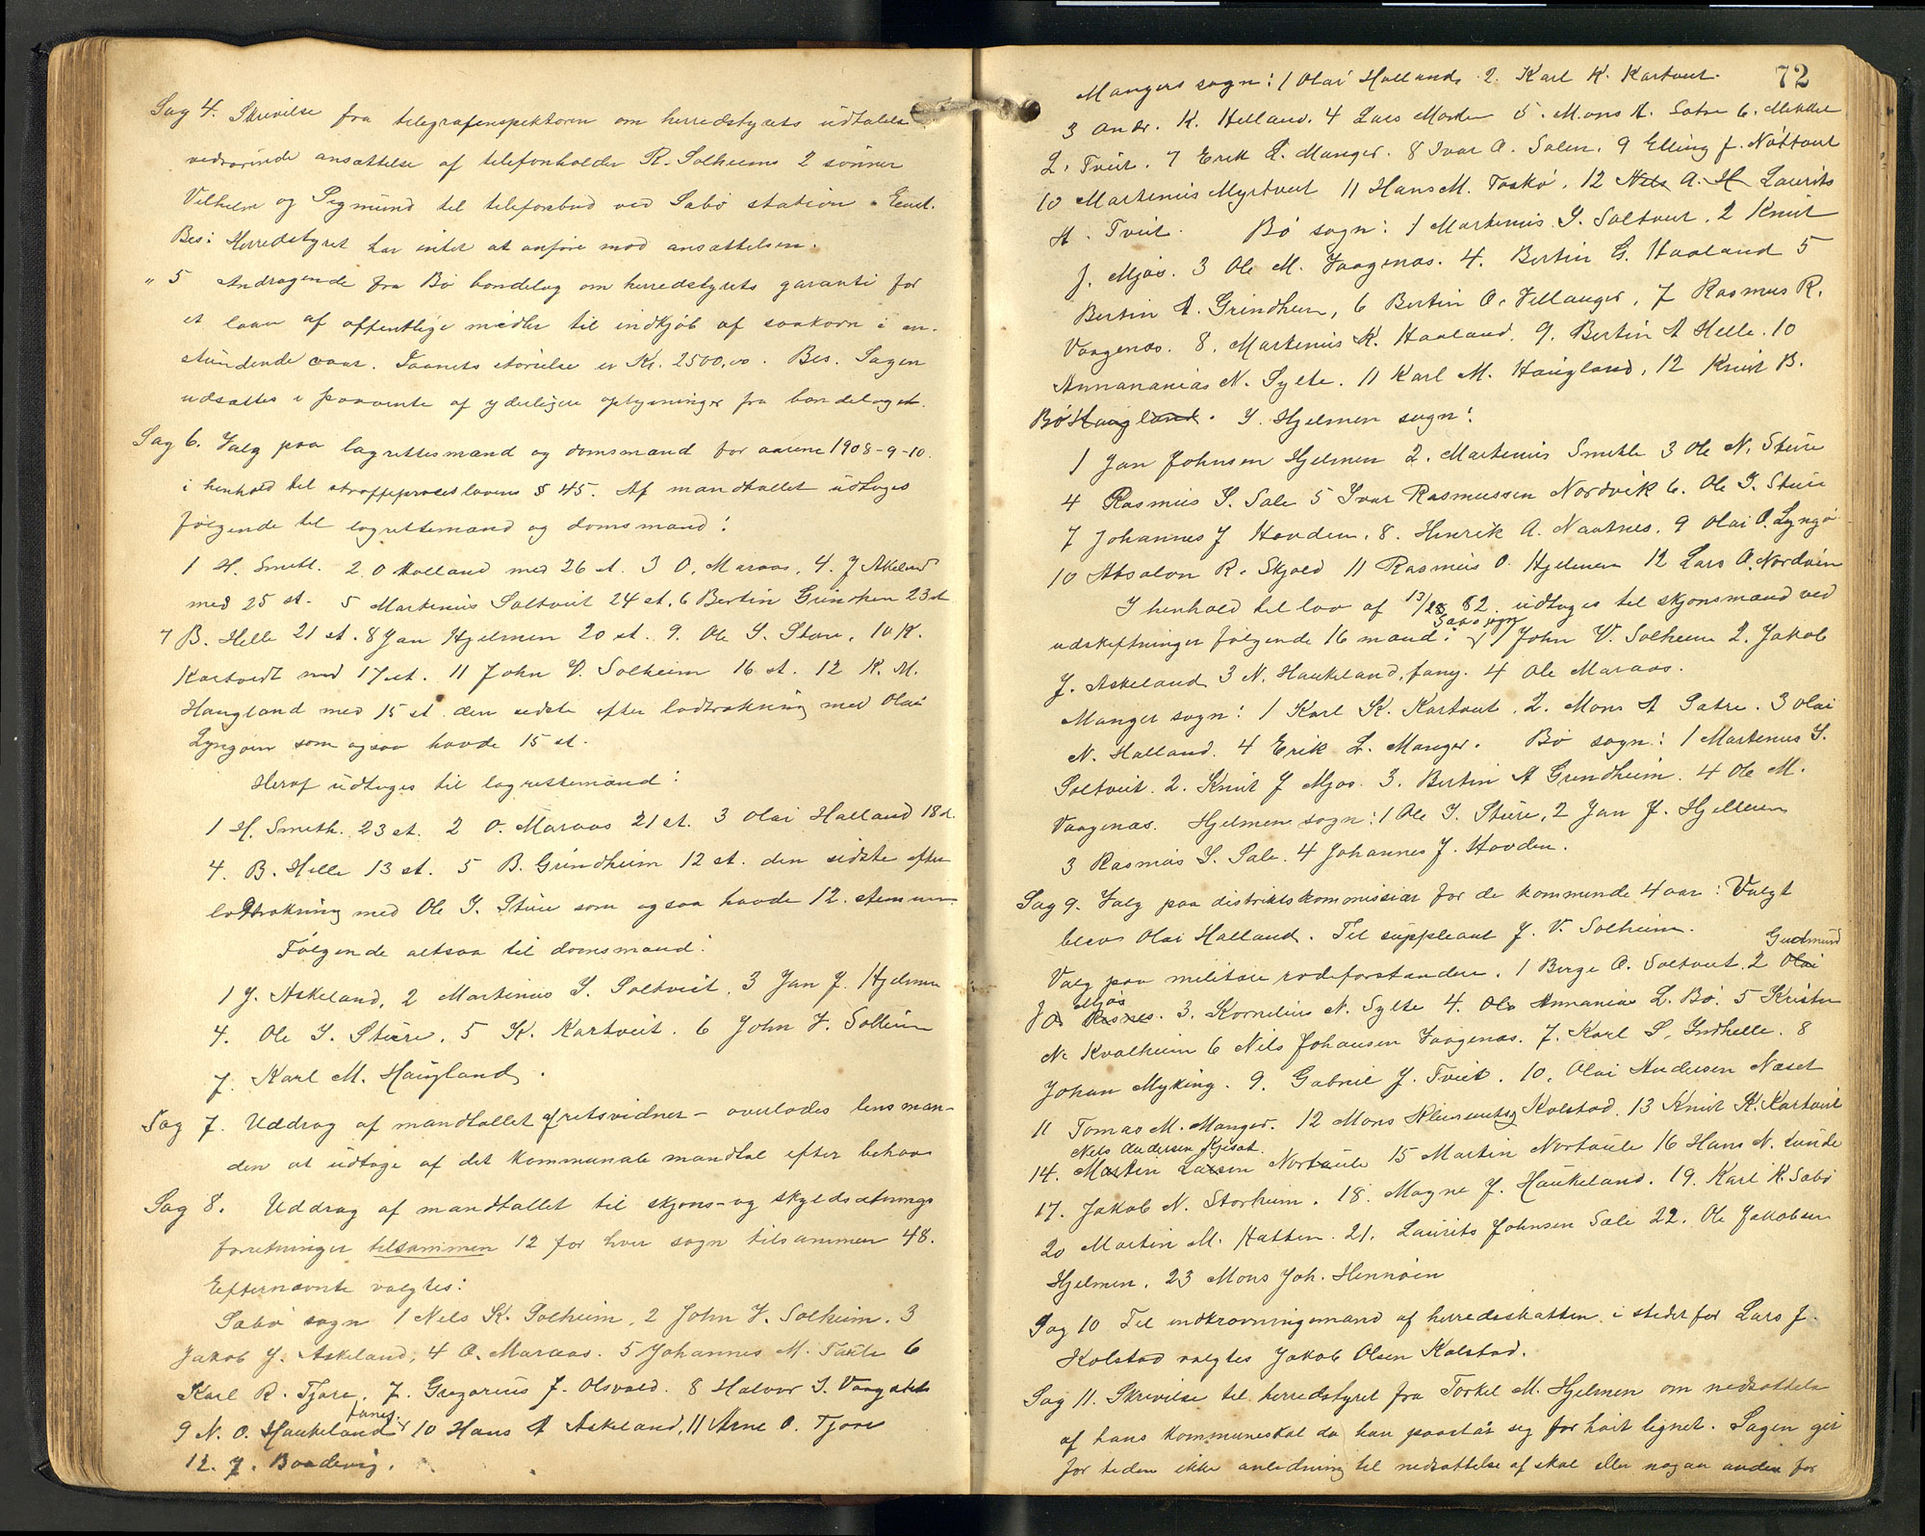 Sag 4. Skrivelse fra telegrafinspektøren om herredstyrets udtalelse
vedrørende ansættelse af telefonholder R. Solheims 2 sønner
Vilhelm og Sigmund til telefonbud ved Sæbø station. Enst.
Bes: Herredstyret har intet at anføre mod ansættelsen.
" 5 Andragende fra Bø bondelag om herredstyrets garanti for
et laan af offentlige midler til indkjøb af saakorn i an-
stundende vaar. Laanets størrelse er Kr. 2500,00. Bes. Sagen
udsættes i paavente af yderligere oplysninger fra bondelaget.
Sag 6. Valg paa lagrettesmænd og domsmænd for aarene 1908-9-10.
i henhold til straffeproceslovens § 45. Af mandtallet udtoges
følgende til lagrettemænd og domsmænd:
1 H. Smith. 2. O Halland med 26 st. 3 O. Maraas, 4. J Askeland
med 25 st. 5 Martinius Soltveit 24 st. 6 Bertin Grindhem 23 st
7 B. Helle 21 st. 8 Jan Hjelmen 20 st. 9. Ole I. Sture, 10 K.
Kartveit med 17 st. 11 John V. Solheim 16 st. 12 K. M.
Haugland med 15 st den sidste efter lodtrækning med Olai
Lyngøen som ogsaa havde 15 st.
Heraf udtoges til lagrettemænd:
1 H. Smith. 23 st. 2 O. Maraas 21 st. 3 Olai Halland 18 st.
4. B. Helle 13 st. 5 B. Grindheim 12 st. den sidste efter
lodtrækning med Ole I. Sture som ogsaa havde 12. stemmer
Følgende altsaa til domsmænd:
1 J. Askeland, 2 Martinius S. Soltveit, 3 Jan J. Hjelmen
4. Ole I. Sture, 5 K. Kartveit. 6 John V. Solheim
7. Karl M. Haugland.
Sag 7. Uddrag af mandtallet af retsvidner - overlodes lensman-
den at udtage af det kommunale mandtal efter behov
Sag 8. Uddrag af mandtallet til skjøns- og skyldsætnings
forretninger tilsammen 12 for hver sogn tilsammen 48.
Efternævnte valgtes:
Sæbø sogn 1 Nels K. Solheim, 2 John V. Solheim. 3
Jakob J. Askeland, 4 O. Maraas. 5 Johannes M. Taule 6
Karl R. Tjore, 7. Gregorius J. Olsvold. 8 Halvor I.
fung.
9 N. O. Haukeland 10 Hans A Askeland, 11 Arne O. Tjore
12. J. Boadevig.
72
Mangers sogn: 1 Olai Halland. 2. Karl K. Kartveit.
3 Andr. K. Helland. 4 Lars 5. Mons A. Sætre 6. Mikkel
L. Tveit. 7 Erik L. Manger. 8 Ivar O. Solem. 9 Elling J. Nøttveit
10 Martinius Myrtveit 11 Hans M. Toskø, 12 Nils A. H Laurits
H. Tveit. Bø sogn: 1 Martinius S. Soltveit. 2 Knut
J. Mjøs. 3 Ole M. Vaagenæs. 4. Bertin G. Haaland 5
Bertin A. Grindheim, 6 Bertin O. Vellanger, 7 Rasmus R.
Vaagenæs. 8. Martinius K. Haaland. 9. Bertin A Helle. 10
Annananias N. Sylte. 11 Karl M. Haugland, 12 Knut B.
Bø Haugland. I. Hjelmen sogn:
1 Jan Johnsen Hjelmen 2. Martinius Smith 3 Ole N. Sture
4 Rasmus S. Sale 5 Ivar Rasmussen Nordvik 6. Ole I. Sture
7 Johannes J Hovden. 8. Henrik A. Nautnes. 9 Olai O. Lyngø
10 Absalon R. Skjold 11 Rasmus O. Hjelmen 12 Lars O. Nordøen
I henhold til lov af 13/ 82. udtoges til skjønsmænd ved
Sæbø sogn
udskiftninger følgende 16 mænd: 1 John V. Solheim 2. Jakob
J. Askeland 3 N. Haukeland, fung. 4 Ole Maraas.
Manger sogn: 1 Karl K. Kartveit. 2. Mons A Sætre. 3 Olai
N. Halland. 4 Erik L. Manger. Bø sogn: 1 Martinus S.
Soltveit. 2. Knut J Mjøs. 3. Bertin A Grindheim. 4 Ole M.
Vaagenæs. Hjelmen sogn: 1 Ole I. Sture, 2 Jan J. Hjelmen
3 Rasmus S. Sale. 4 Johannes J. Hovden.
Sag 9. Valg paa distriktskommissær for de kommende 4 aar: Valgt
blev Olai Halland. Til suppleant J. V. Solheim.
Gudmund
Valg paa militære rodeforstandere. 1 Børge O. Soltveit. 2 Olai
Mjøs
J O Risnes. 3. Kornelius N. Sylte 4. Ole Annanias L. Bø. 5 Krister
N. Kvalheim 6 Nils Johansen Vaagenæs. 7. Karl S. Indhelle. 8
Johan Myking. 9. Gabriel J. Tveit. 10. Olai Andersen Næset
11 Tomas M. Manger. 12 Mons Klementsg Kolstad. 13 Knut K. Kartveit
Nels Andersen
14. Morten Larsen Nortaule 15 Martin Nortaule 16 Hans N. Lunde
17. Jakob N. Storheim. 18. Magne J. Haukeland. 19. Karl K. Sæbø
20 Martin M. Hatten. 21. Laurits Johnsen Sale 22. Ole Jakobsen
Hjelmen. 23 Mons Joh. Hennøen
Sag 10 Til indkrævningsmand af herredsskatten i stedet for Lars J.
Kolstad valgtes Jakob Olsen Kolstad.
Sag 11. Skrivelse til herredstyret fra Torkel M. Hjelmen om nedsættelse
af hans kommuneskat da han paastår seg for høit lignet. Sagen gir
for tiden ikke anledning til nedsættelse af skat eller nogen anden for